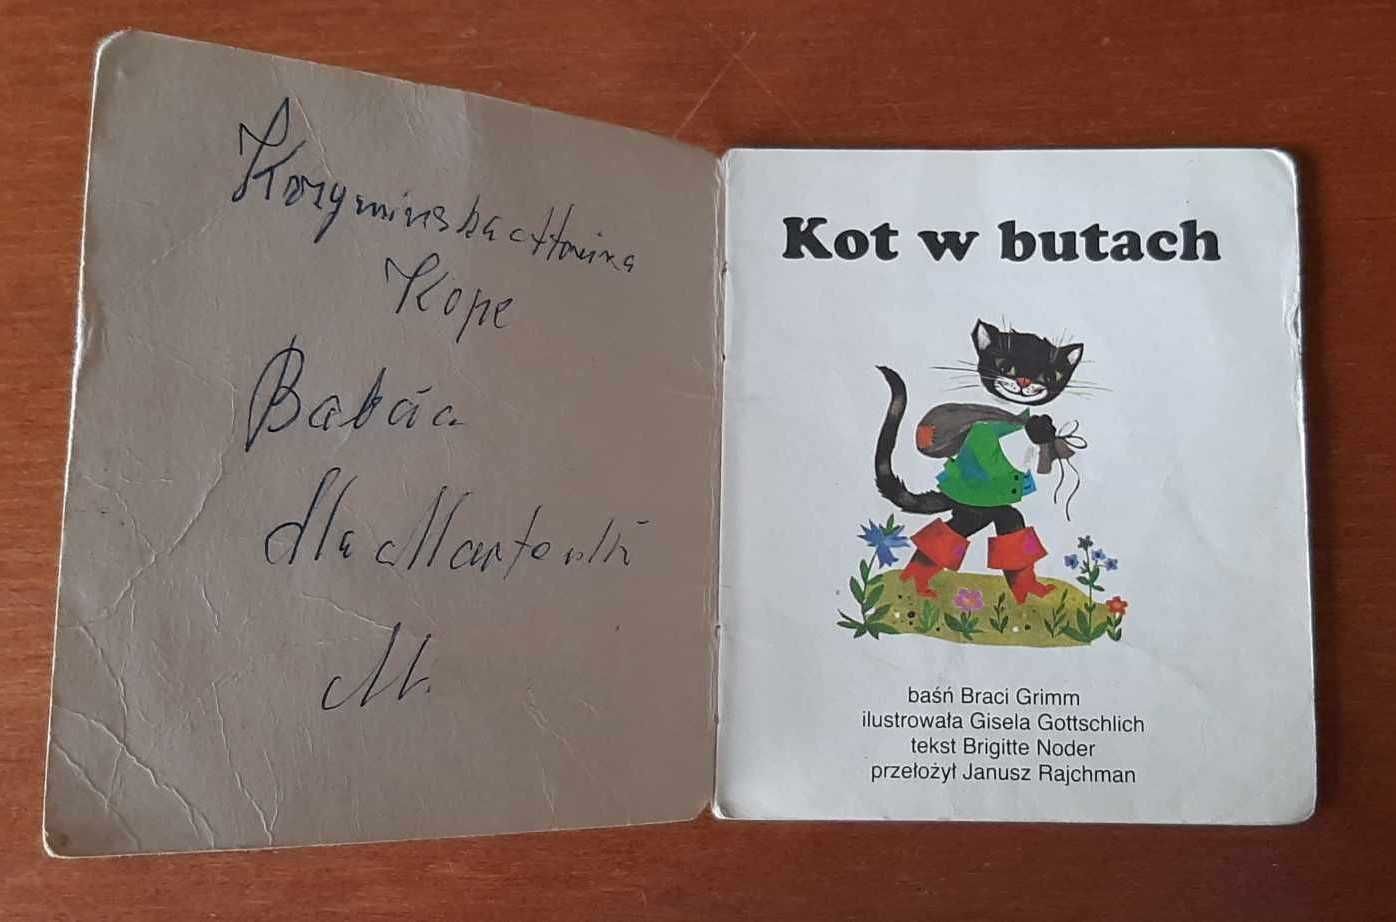 Kope
Babcia
dla
M.
Kot w butach
baśń Braci Grimm
ilustrowała Gisela Gottschlich
tekst Brigitte Noder
przełożył Janusz Rajchman